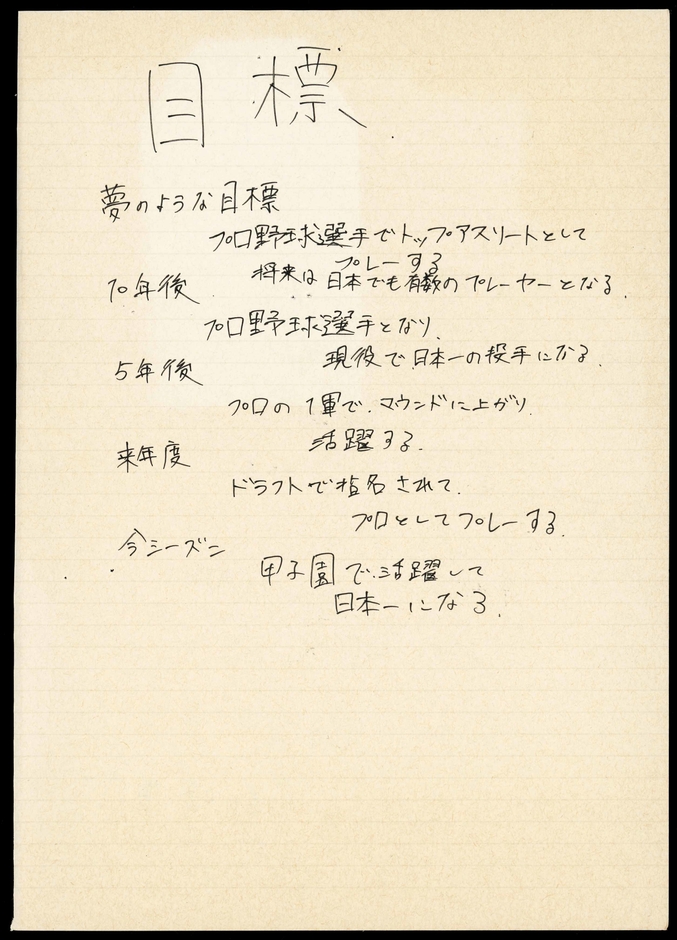 目標
夢のような目標
プロ野球選手でトップアスリートとして
プレーする
将来は日本でも有数のプレーヤーとなる.
10年後
プロ野球選手となり.
現役で日本一の投手になる.
5年後
プロの1軍で.マウンドに上がり.
活躍する.
来年度
ドラフトで指名されて.
プロとしてプレーする.
今シーズン
甲子園で活躍して
日本一になる.